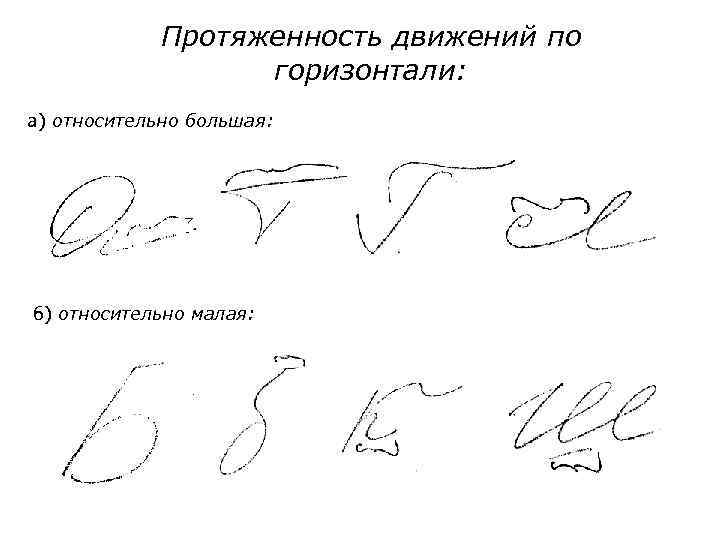 Протяженность движений по
горизонтали:
а) относительно большая:
б) относительно малая:
Б б К Ш